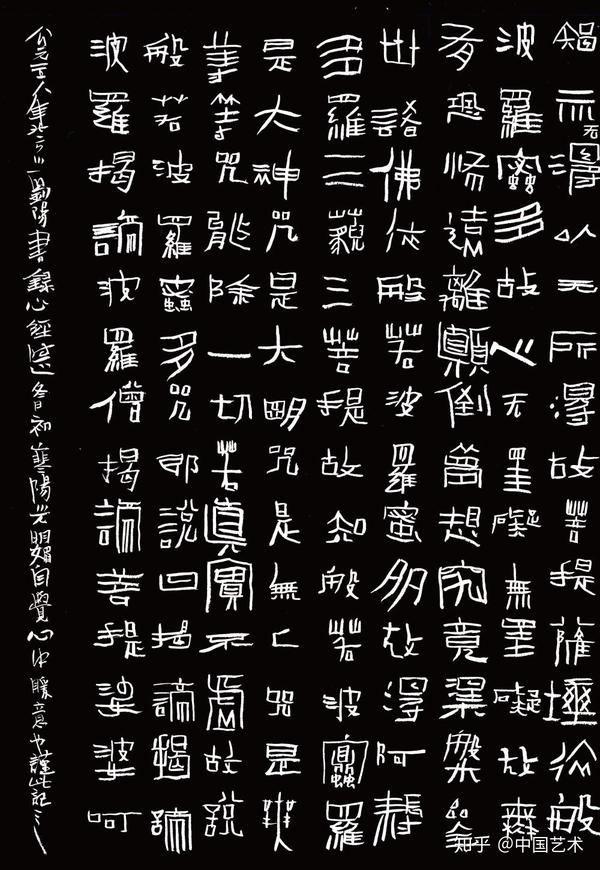 智亦无得以无所得故菩提薩埵依般
波羅蜜多故心无罣礙無罣礙故無
有恐怖遠離顛倒夢想究竟涅槃叁
世諸佛依般若波羅蜜多故得阿耨
多羅三藐三菩提故知般若波蜜羅
是大神咒是大明咒是無上咒是無
等等咒能除一切苦真實不虛故說
般若波羅蜜多咒即說曰揭諦揭諦
波羅揭諦波羅僧揭諦菩提娑婆呵
公元年襄陽書錄心經春初襄陽光明媚自覺心中暖意也謹此記之
知乎 @中国艺术